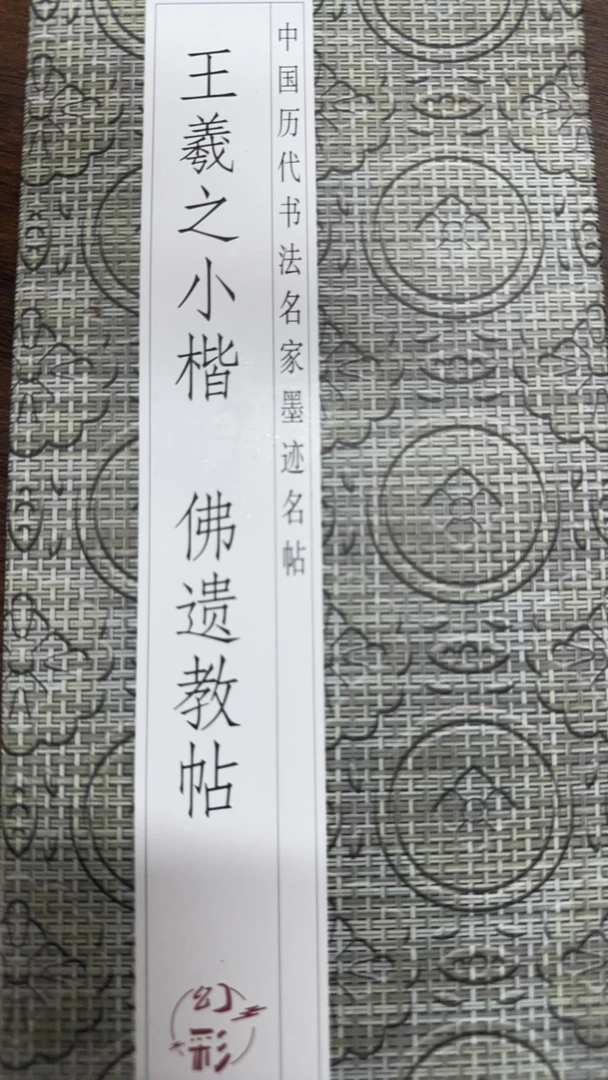 中国历代书法名家墨迹名帖
王羲之小楷 佛遗教帖
幻彩